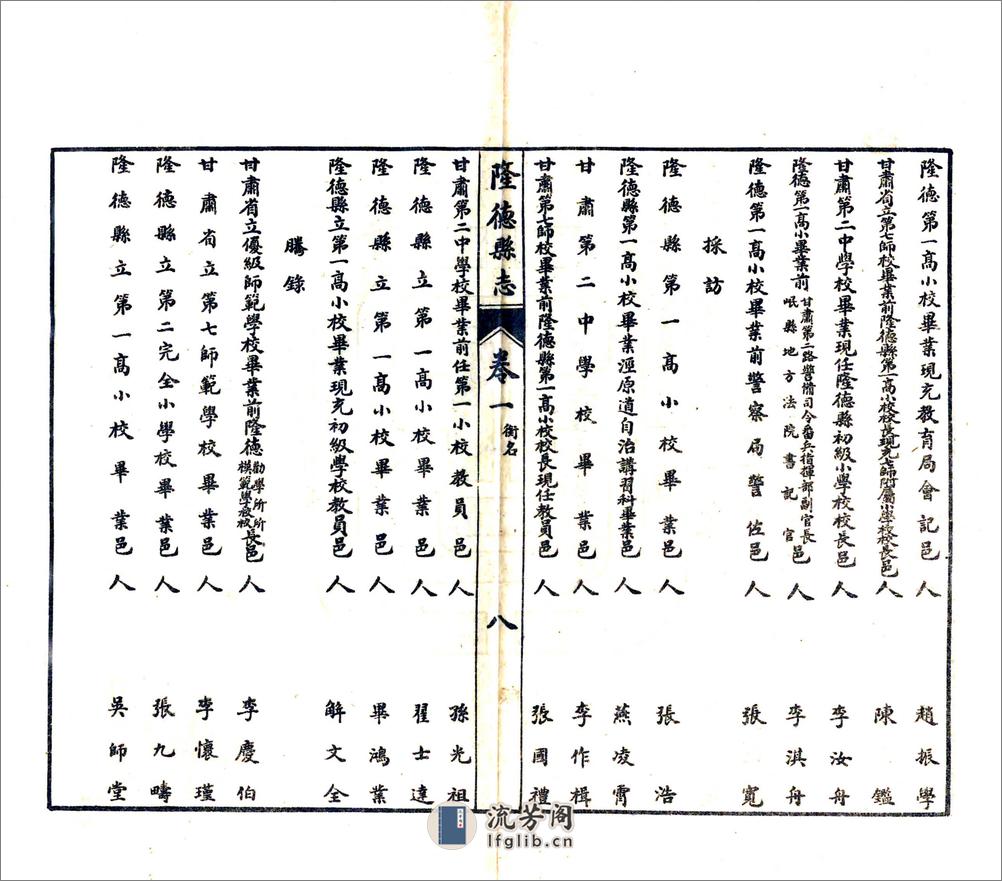 隆德第一高小校畢業現充教育局會記邑人 趙振學
甘肅省立第七師校畢業前隆德縣第一高小校校長現充七師附屬小學校校長邑人 陳鑑
甘肅第二中學校畢業現任隆德縣初級小學校校長邑人 李汝舟
隆德第一高小畢業前甘肅第二路警備司令番兵指揮部副官長岷縣地方法院書記官邑人 李淇舟
隆德第一高小校畢業前警察局警佐邑人 張寬
採訪
隆德縣第一高小校畢業邑人 張浩
隆德縣第一高小校畢業涇原道自治講習科畢業邑人 燕凌霄
甘肅第二中學校畢業邑人 李作楫
甘肅第七師校畢業前隆德縣第一高小校校長現任教員邑人 張國禮
隆德縣志 卷一 銜名 八
甘肅第二中學校畢業前任第一小校教員邑人 孫光祖
隆德縣立第一高小校畢業邑人 翟士達
隆德縣立第一高小校畢業邑人 畢鴻業
隆德縣立第一高小校畢業現充初級學校教員邑人 解文全
騰錄
甘肅省立優級師範學校畢業前隆德勸學所所模範學校校長邑人 李慶伯
甘肅省立第七師範學校畢業邑人 李懷瑾
隆德縣立第二完全小學校畢業邑人 張九疇
隆德縣立第一高小校畢業邑人 吳師堂
流芳阁
lfglib.cn